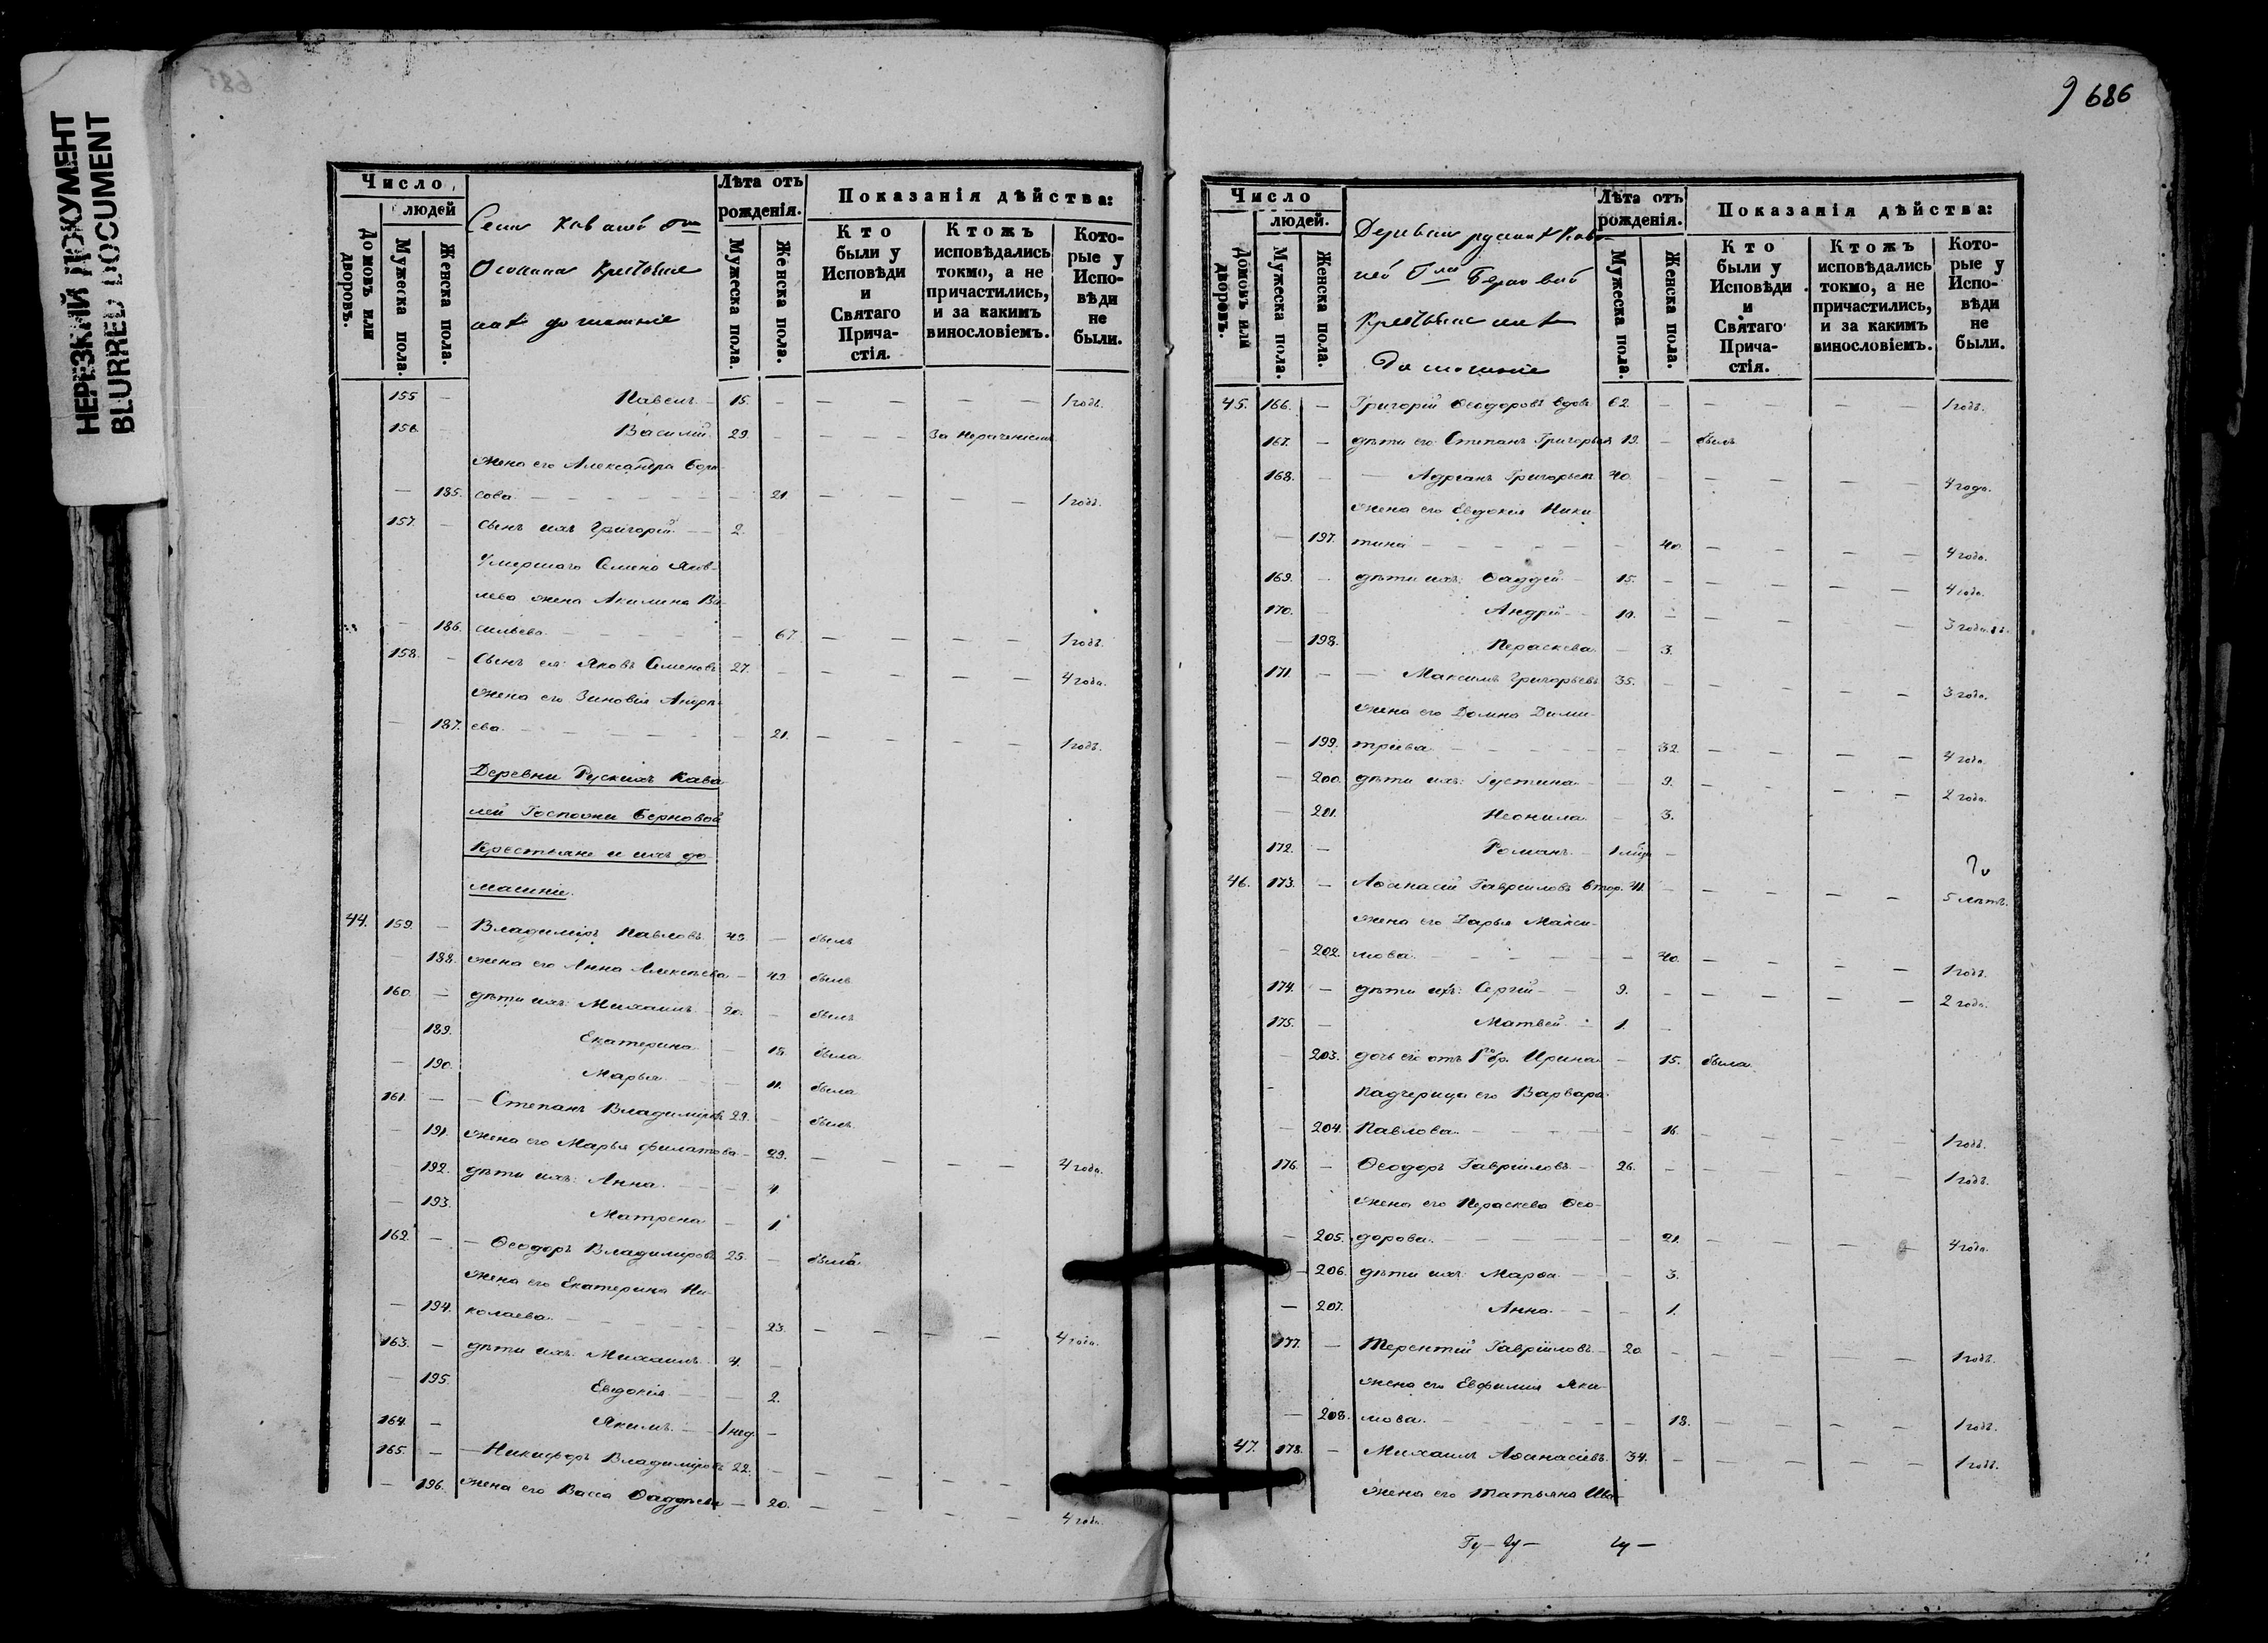 НЕРЕЗКИЙ ДОКУМЕНТ
BLURRED DOCUMENT
685
Число
людей
Домовъ или дворовъ.
Мужеска пола.
Женска пола.
Лѣта отъ рожденія.
Мужеска пола.
Женска пола.
Показанія дѣйства:
Кто были у Исповѣди и Святаго Причастія.
Ктожъ исповѣдались токмо, а не причастились, и за какимъ винословіемъ.
Которые у Исповѣди не были.
155 — Павелъ 15. — — — — — 1 годъ.
156. Василій 29. — — — — за нераченіемъ
жена его Александра Бори-
— 185. сова — — 21 — — — — 1 годъ.
157. — сынъ ихъ Григорій — 2.
Умершаго Семена Яков-
лева жена Акилина Ва-
186. сильева — — 67. — — — — 1 годъ.
158. — сынъ ея: Яковъ Семеновъ 27. — — — — 4 года.
жена его Зиновія Андре-
— 187. ева — — 21. — — — — 1 годъ.
Деревни Рускихъ Кова-
лей Госпожи Берновой
Крестьяне и ихъ до-
машніе.
44. 159. — Владиміръ Павловъ 49. — былъ
— 188. жена его Анна Алексѣева — 49. была
160. — дѣти ихъ: Михаилъ 20. — былъ
189. Екатерина — 15. была
— 190. Марья — 11. была
161. — — Степанъ Владиміровъ 29. — былъ
— 191. жена его Марья Филатова — 29. — — — — 4 года.
192. дѣти ихъ: Анна — 4.
— 193. Матрена — 1
162. — — Ѳеодоръ Владиміровъ 25. — былъ
жена его Екатерина Ни-
— 194. колаева — 23. — — — — 4 года.
163. — дѣти ихъ: Михаилъ 4. —
— 195. Евдокія — 2.
164. — Якимъ — 1 нед. —
165. — — Никифоръ Владиміровъ 22. — — — —
— 196. жена его Васса Ѳаддѣева — 20. — — — 4 года.
686
Число
людей.
Домовъ или дворовъ.
Мужеска пола.
Женска пола.
Деревни рускихъ Кова-
лей
Крестьяне ихъ
Домашніе
Лѣта отъ рожденія.
Мужеска пола.
Женска пола.
Показанія дѣйства:
Кто были у Исповѣди и Святаго Причастія.
Ктожъ исповѣдались токмо, а не причастились, и за какимъ винословіемъ.
Которые у Исповѣди не были.
45. 166. — Григорій Ѳеодоровъ вдовъ 62. — — — — 1 годъ.
167. — дѣти его: Степанъ Григорьев 19. — былъ
168. — — Адріанъ Григорьевъ 40. — — — — 4 года.
жена его Евдокія Ники-
— 197. тина — — 40 — — — — 4 года.
169. — дѣти ихъ: Ѳаддей — 15. — — — — 4 года.
170. — Андрей — 10. — — — — 3 года.
— 198. Параскева — 3.
171. — — Максимъ Григорьевъ 35. — — — — 3 года.
жена его Домна Дими-
— 199. тріева — — 32. — — — — 4 года
— 200. дѣти ихъ: Густина — 9. — — — — 2 года.
— 201. Неонила — 3.
172. — Романъ — 1 мѣц. —
46. 173. — Аѳанасій Гавріиловъ втор. 41. — — — — 5 лѣтъ.
жена его Дарья Макси-
— 202. мова — — 40. — — — — 1 годъ.
174. — дѣти ихъ: Сергій — 9. — — — — 2 года.
175. — Матвей — 1. —
203. дочь его отъ 1го бр. Ирина — 15. была.
Падчерица его Варвара
— 204. Павлова — — 16. — — — — 1 годъ.
176. — Ѳеодоръ Гавріиловъ — 26. — — — — 1 годъ.
жена его Параскева Ѳео-
— 205. дорова — — 21. — — — — 4 года.
— 206. дѣти ихъ: Марѳа — — 3.
— 207. Анна — — 1.
177. — Терентій Гавріиловъ — 20. — — — — 1 годъ.
жена его Евфимія Яки-
— 208. мова — — 18. — — — — 1 годъ.
47. 178. — Михаилъ Аѳанасіевъ 34. — — — — 1 годъ.
жена его Татьяна Ива-